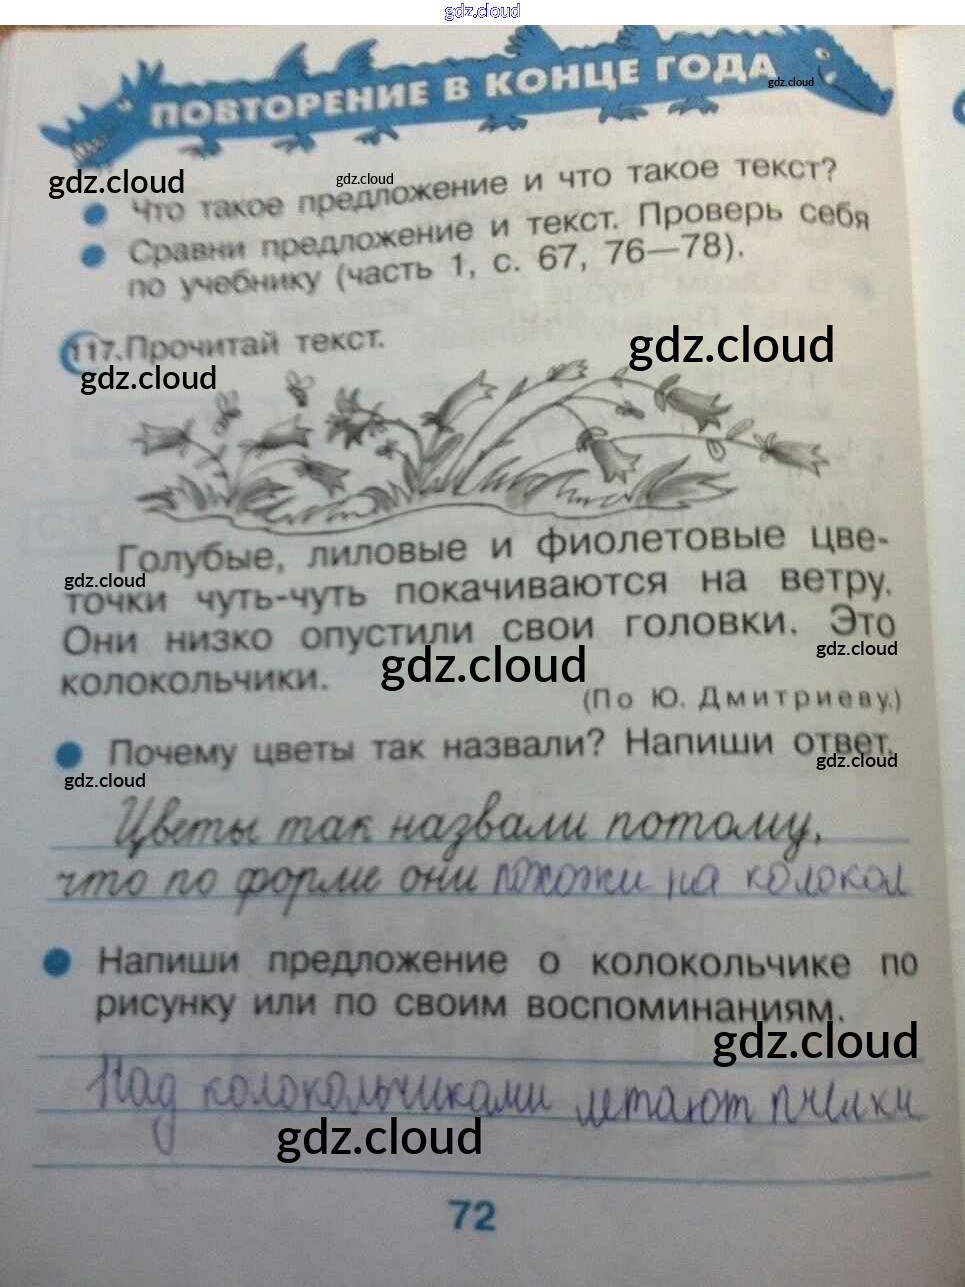 gdz.cloud
ПОВТОРЕНИЕ В КОНЦЕ ГОДА
gdz.cloud
gdz.cloud
gdz.cloud
Что такое предложение и что такое текст?
Сравни предложение и текст. Проверь себя
по учебнику (часть 1, с. 67, 76—78).
117. Прочитай текст.
gdz.cloud
gdz.cloud
Голубые, лиловые и фиолетовые цве-
gdz.cloud
точки чуть-чуть покачиваются на ветру.
Они низко опустили свои головки. Это
gdz.cloud
колокольчики.
gdz.cloud
(По Ю. Дмитриеву.)
Почему цветы так назвали? Напиши ответ.
gdz.cloud
gdz.cloud
Цветы так назвали потому,
что по форме они похожи на колокол
Напиши предложение о колокольчике по
рисунку или по своим воспоминаниям.
gdz.cloud
Над колокольчиками летают пчёлки
gdz.cloud
72